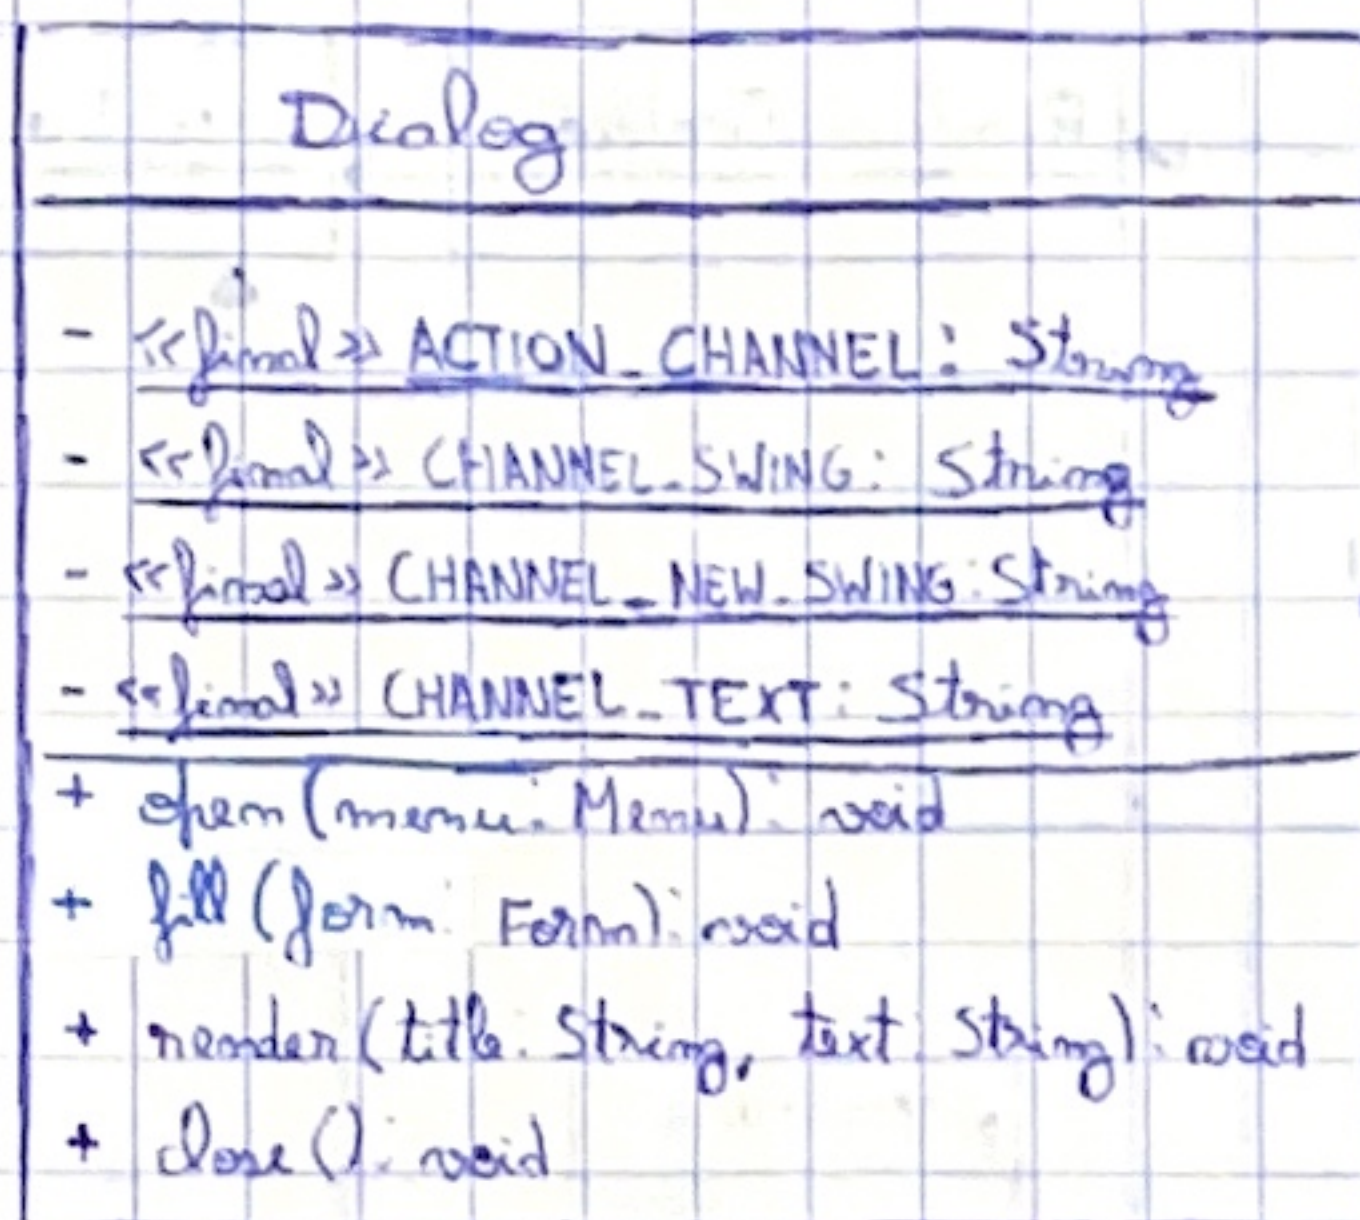 Dialog
- <<final>> ACTION_CHANNEL: String
- <<final>> CHANNEL_SWING: String
- <<final>> CHANNEL_NEW_SWING: String
- <<final>> CHANNEL_TEXT: String
+ open(menu: Menu): void
+ fill(form: Form): void
+ render(title: String, text: String): void
+ close(): void